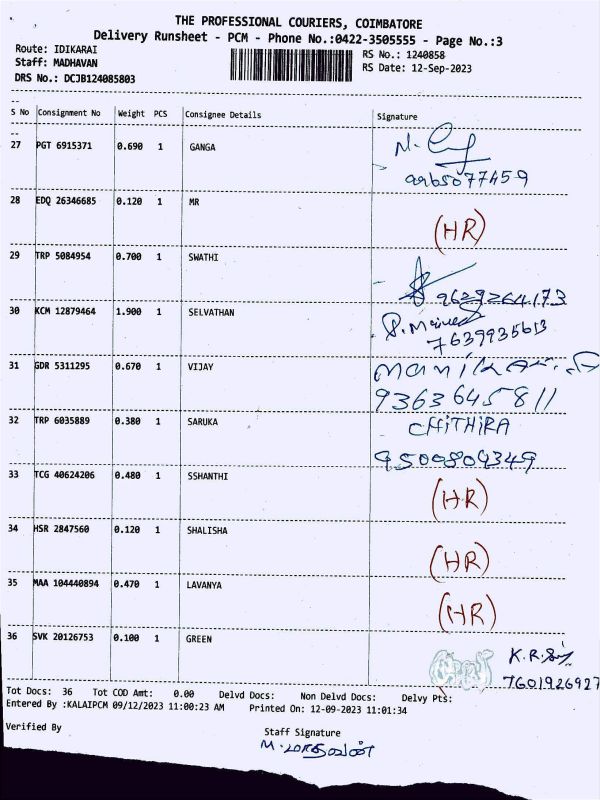 THE PROFESSIONAL COURIERS, COIMBATORE
Delivery Runsheet - PCM - Phone No.:0422-3505555 - Page No.:3
Route: IDIKARAI
RS No.: 1240858
Staff: MADHAVAN
RS Date: 12-Sep-2023
DRS No.: DCJB124085803
S No Consignment No Weight PCS Consignee Details Signature
27 PGT 6915371 0.690 1 GANGA
28 EDQ 26346685 0.120 1 MR (HR)
29 TRP 5084954 0.700 1 SWATHI
9629264173
30 KCM 12879464 1.900 1 SELVATHAN
7639935613
31 GDR 5311295 0.670 1 VIJAY
9363645811
32 TRP 6035889 0.380 1 SARUKA CHITHIRA
9500804349
33 TCG 40624206 0.480 1 SSHANTHI (HR)
34 HSR 2847560 0.120 1 SHALISHA (HR)
35 MAA 104440894 0.470 1 LAVANYA (HR)
36 SVK 20126753 0.100 1 GREEN K.R.
7601926927
Tot Docs: 36 Tot COD Amt: 0.00 Delvd Docs: Non Delvd Docs: Delvy Pts:
Entered By :KALAIPCM 09/12/2023 11:00:23 AM Printed On: 12-09-2023 11:01:34
Verified By
Staff Signature
M. மாதவன்